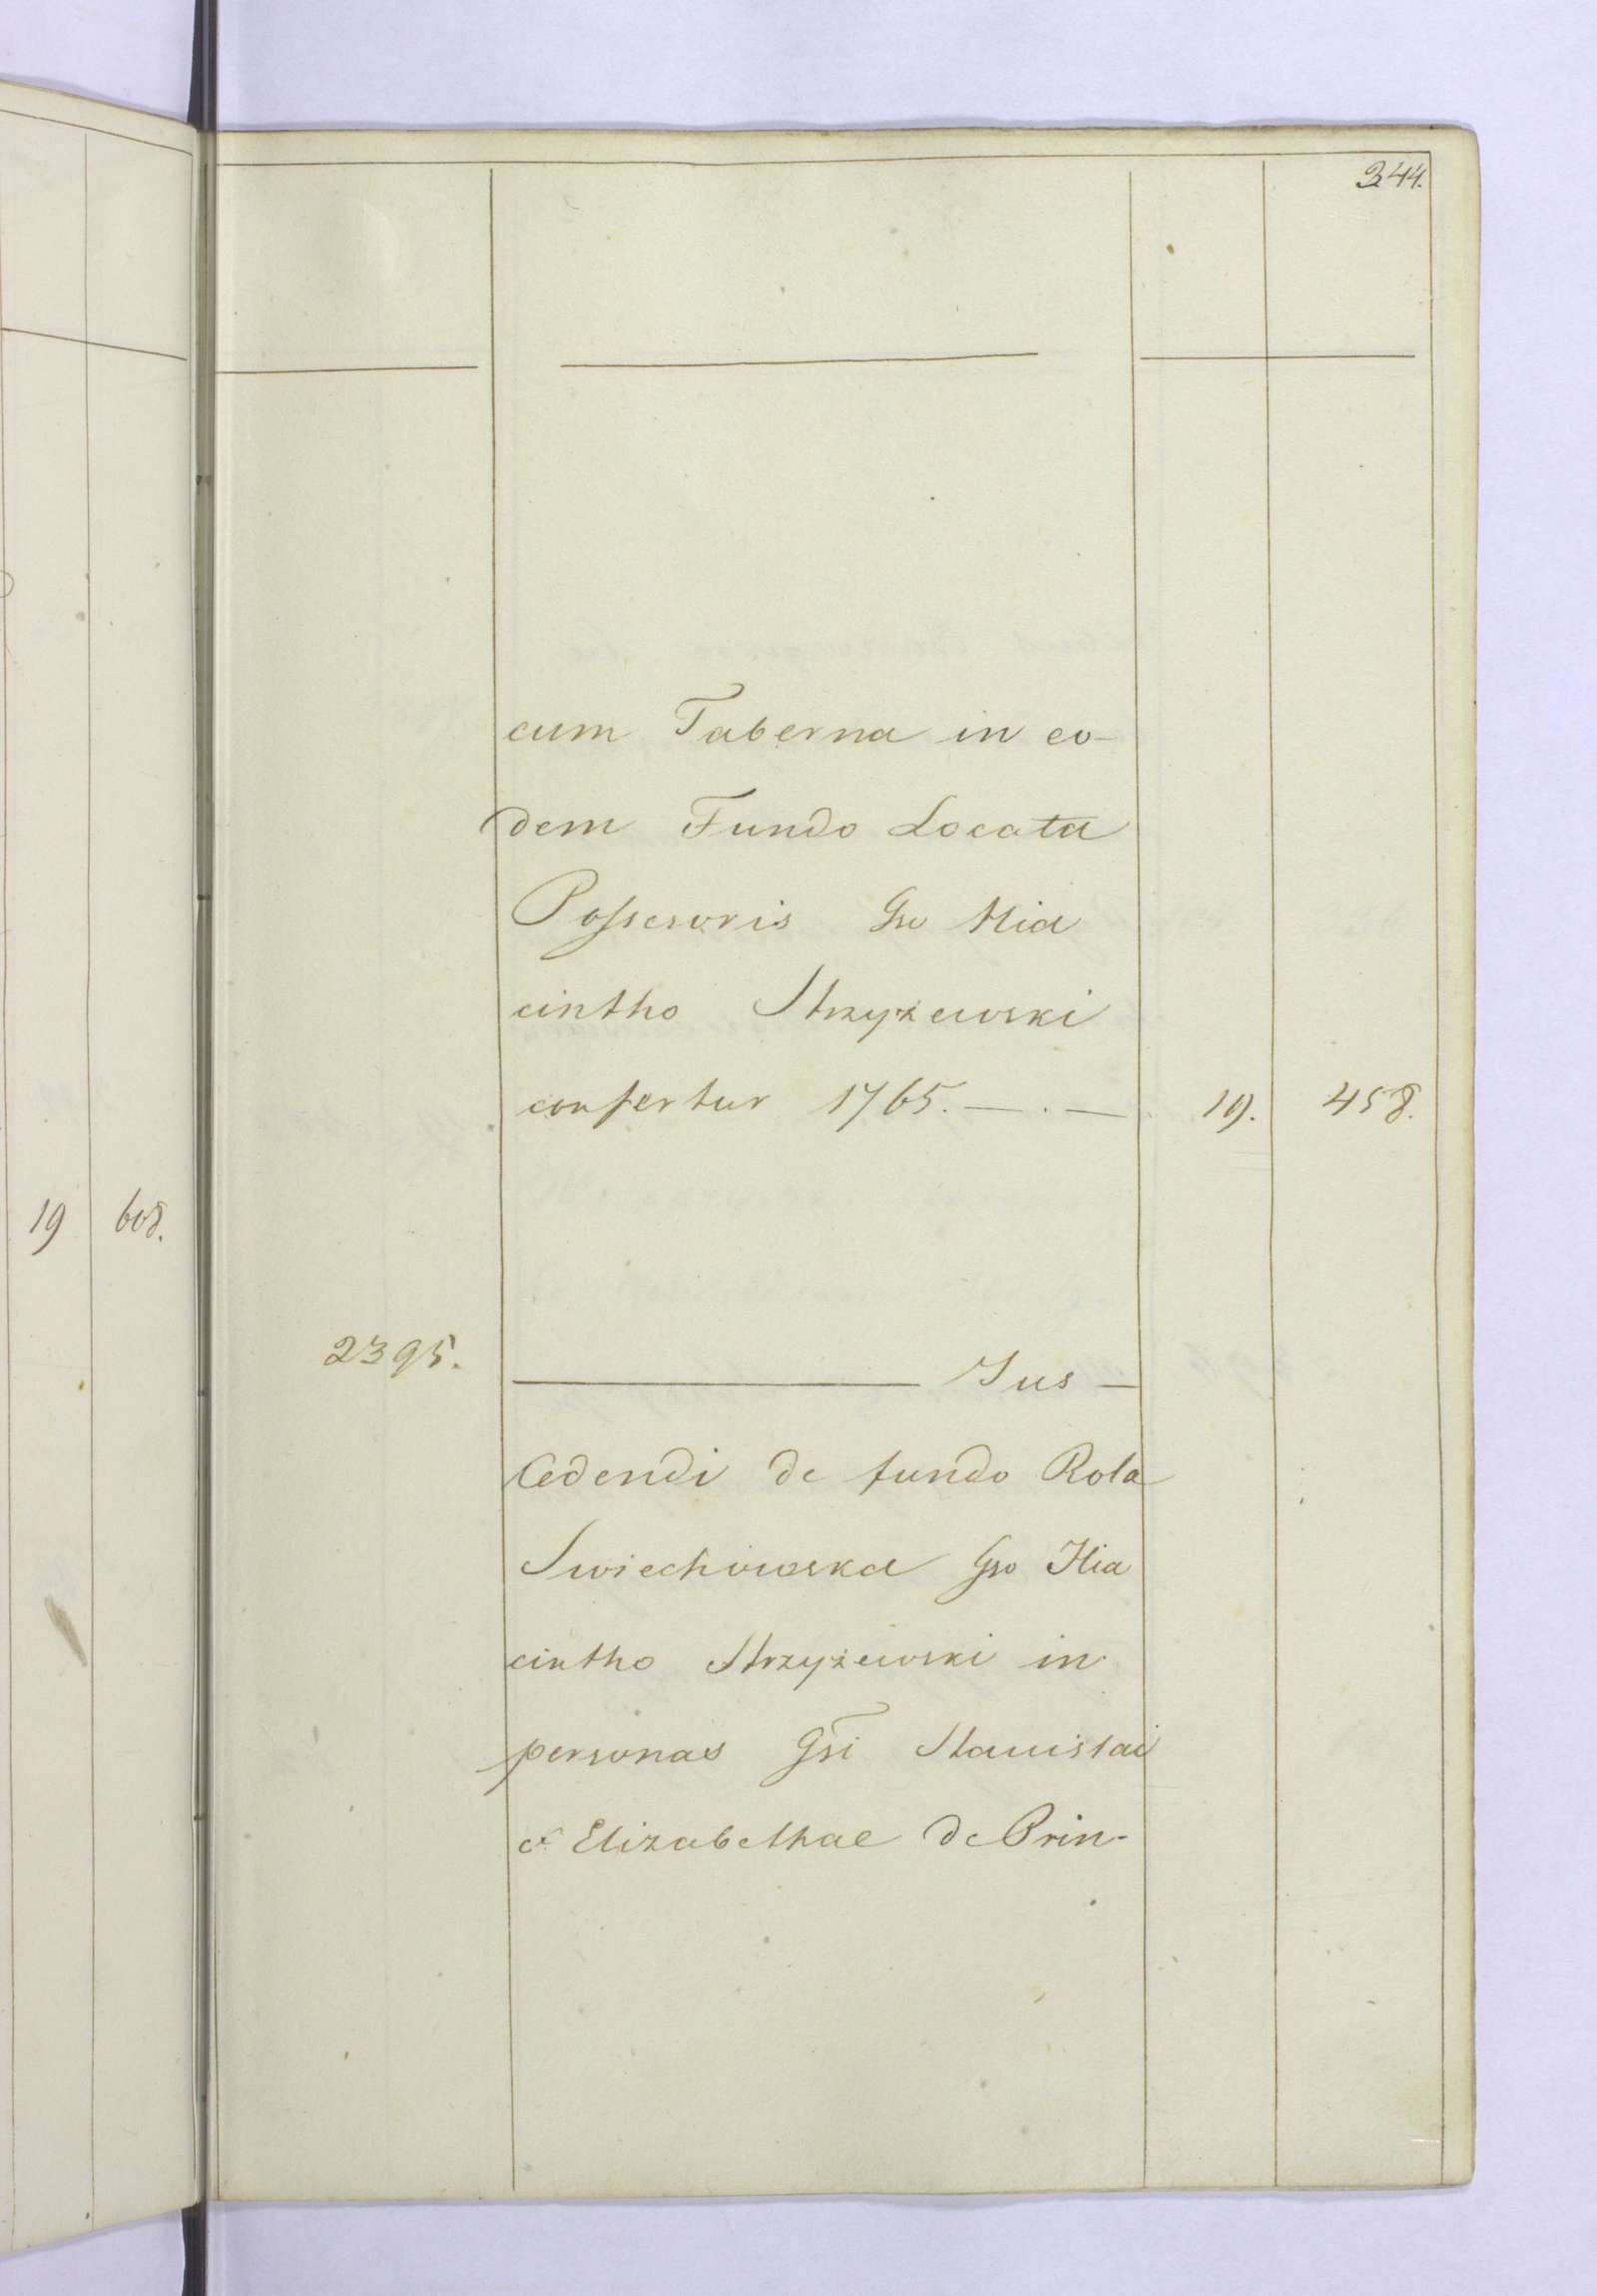 344.
cum Taberna in eo-
dem Fundo Locata
Possesoris Gso Hia
cintho Strzyżewski
confertur 1765. — . — 19. 458.
19 608.
2395. ——— Jus —
Cedendi de fundo Rola
Swiechowska Gso Hia
cintho Strzyżewski in
personas Gsi Stanislai
et Elizabethae de Prin-